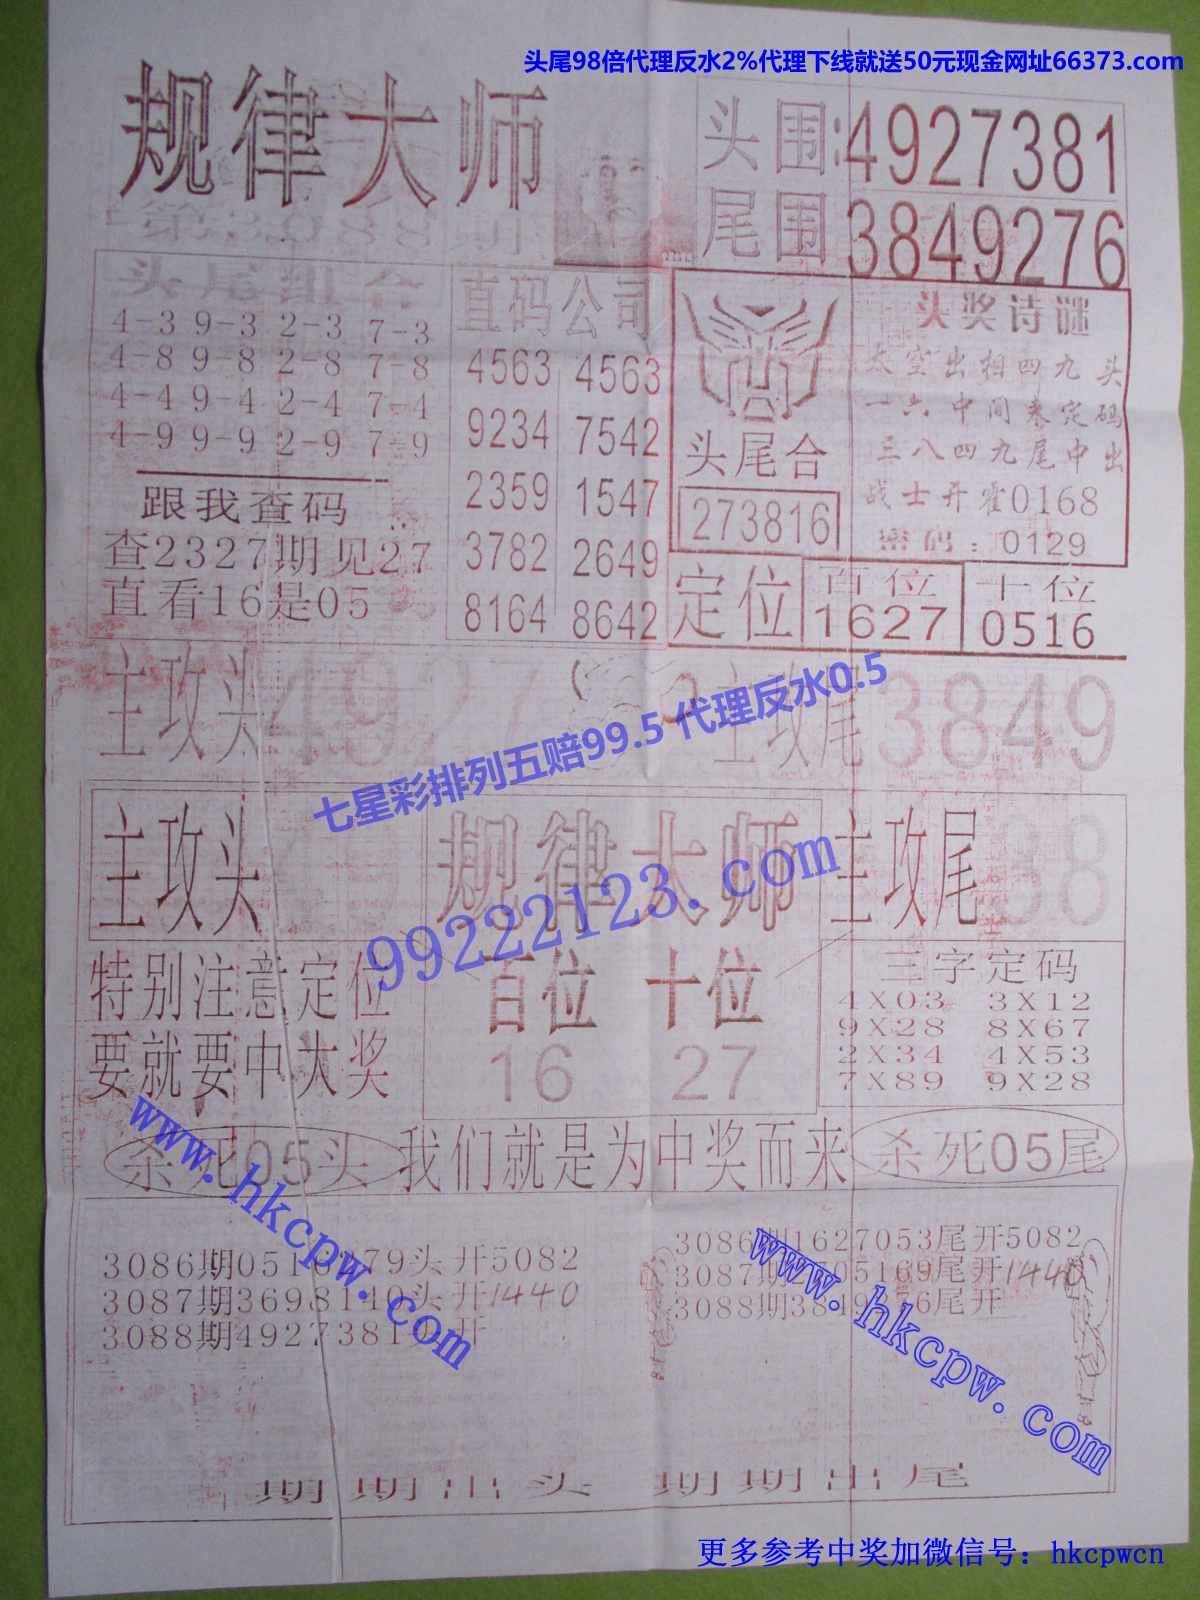 头尾98倍代理反水2%代理下线就送50元现金网址66373.com
规律大师
第3088期
头围:4927381
尾围3849276
头尾组合
4-3 9-3 2-3 7-3
4-8 9-8 2-8 7-8
4-4 9-4 2-4 7-4
4-9 9-9 2-9 7-9
跟我查码
查2327期见27
直看16是05
直码公司
4563 4563
9234 7542
2359 1547
3782 2649
8164 8642
头尾合
273816
头奖诗谜
太空出相四九头
一六中间来定码
三八四九尾中出
战士开霍0168
密码:0129
定位
百位
1627
十位
0516
主攻头4927
主攻尾3849
七星彩排列五赔99.5 代理反水0.5
主攻头
规律大师
主攻尾38
99222123.com
特别注意定位
要就要中大奖
百位 十位
16 27
三字定码
4X03 3X12
9X28 8X67
2X34 4X53
7X89 9X28
杀死05头
我们就是为中奖而来
杀死05尾
www.hkcpw.com
3086期 头开5082
3087期3698140头开1440
3088期4927381 开
www.hkcpw.com
3086期1627053尾开5082
3087期 05169尾开1440
3088期3849276尾开
期期出头 期期出尾
更多参考中奖加微信号：hkcpwcn